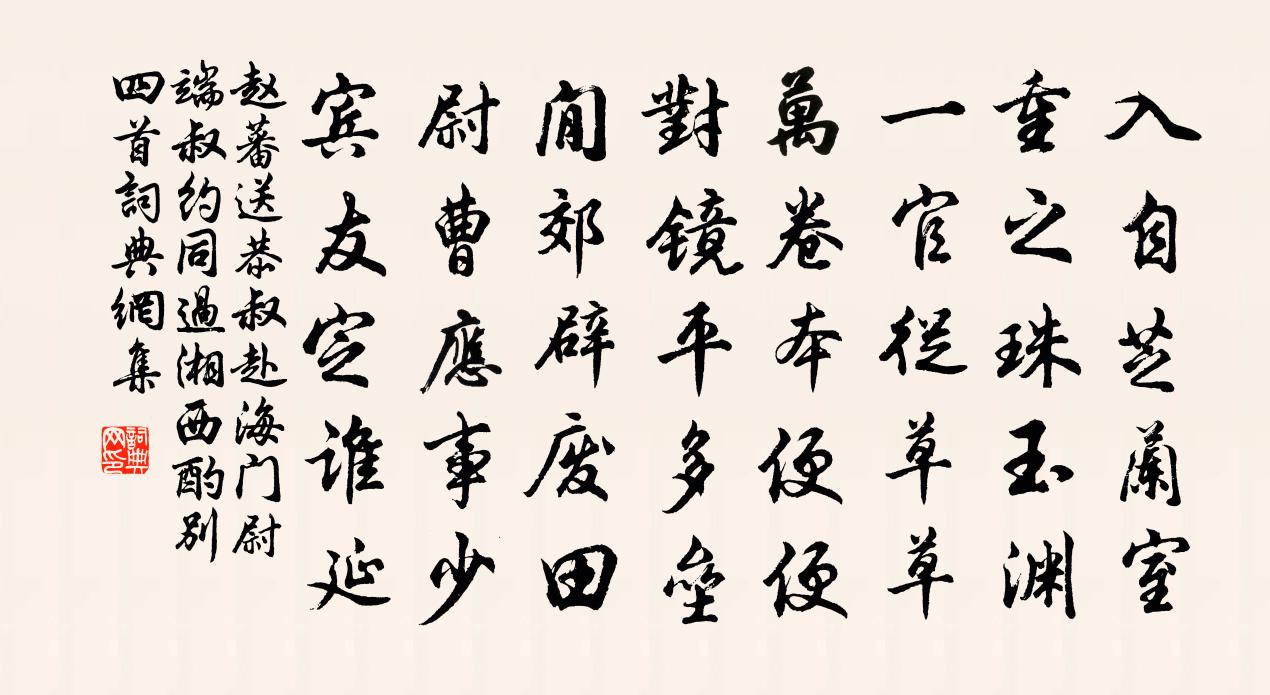 入自芝蘭室
重之珠玉渊
一官從草草
萬卷本便便
對镜平多壘
閒郊辟废田
尉曹應事少
宾友定谁延
赵蕃送恭叔赴海门尉
端叔约同過湘西酌别
四首詞典網集
詞典
网印